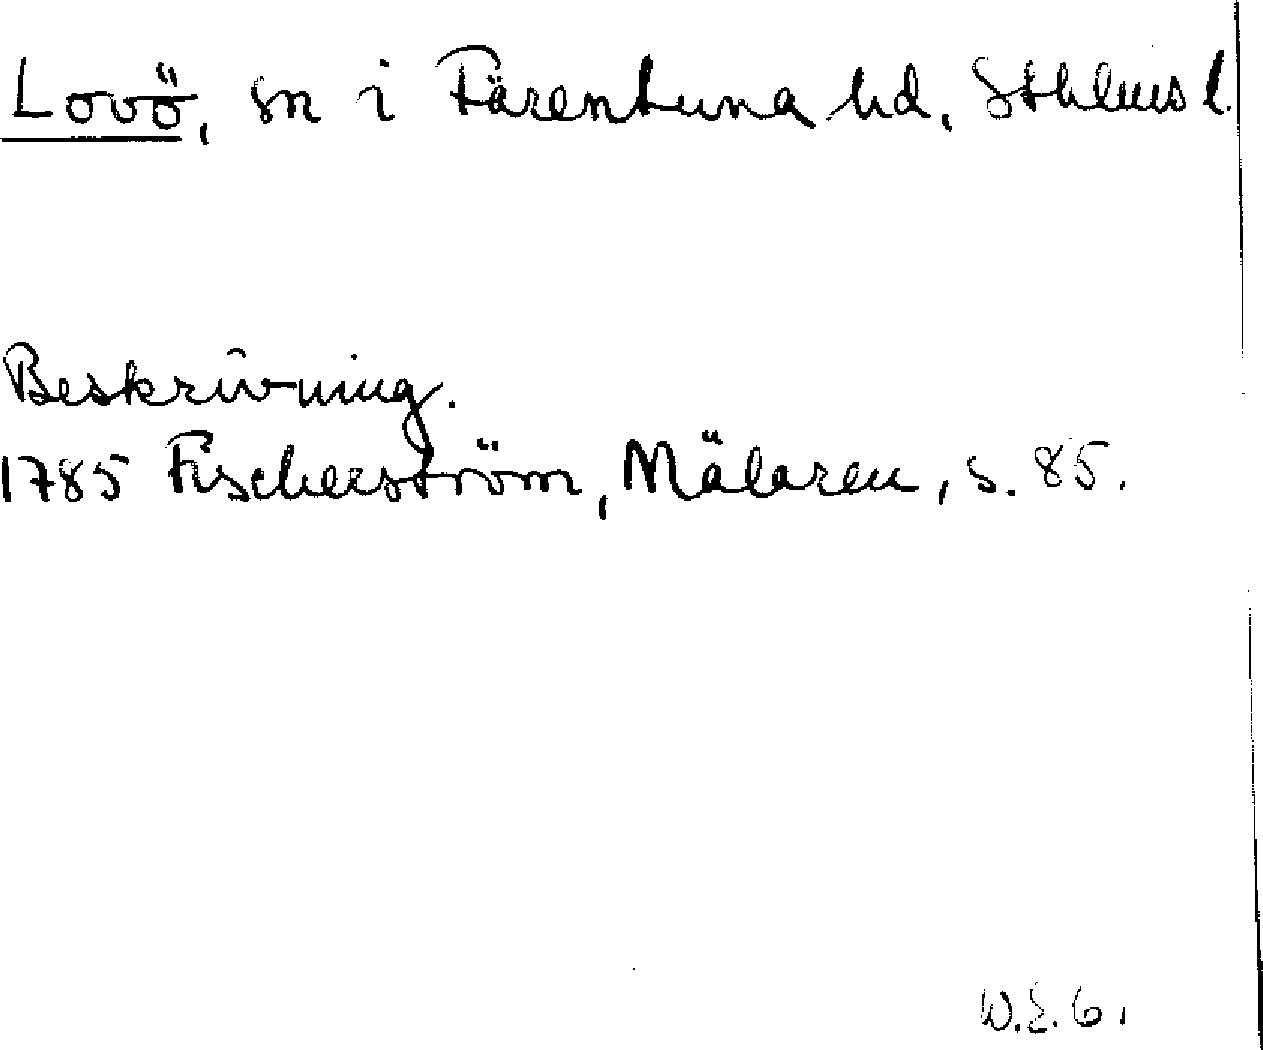 Lovö, sn i Färentuna hd, Sthlms l.
Beskrivning.
1785 Fischerström, Mälaren, s. 85.
W.E.6.